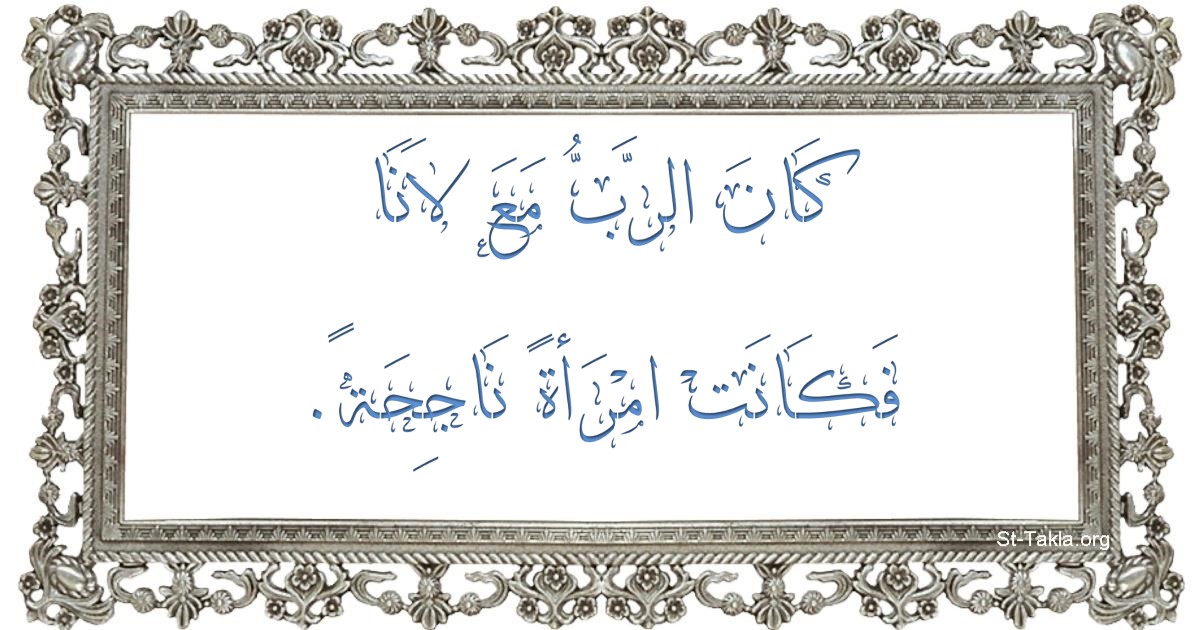 كَانَ الرَّبُّ مَعَ لاَنَا
فَكَانَتْ امْرَأَةً نَاجِحَةً.
St-Takla.org